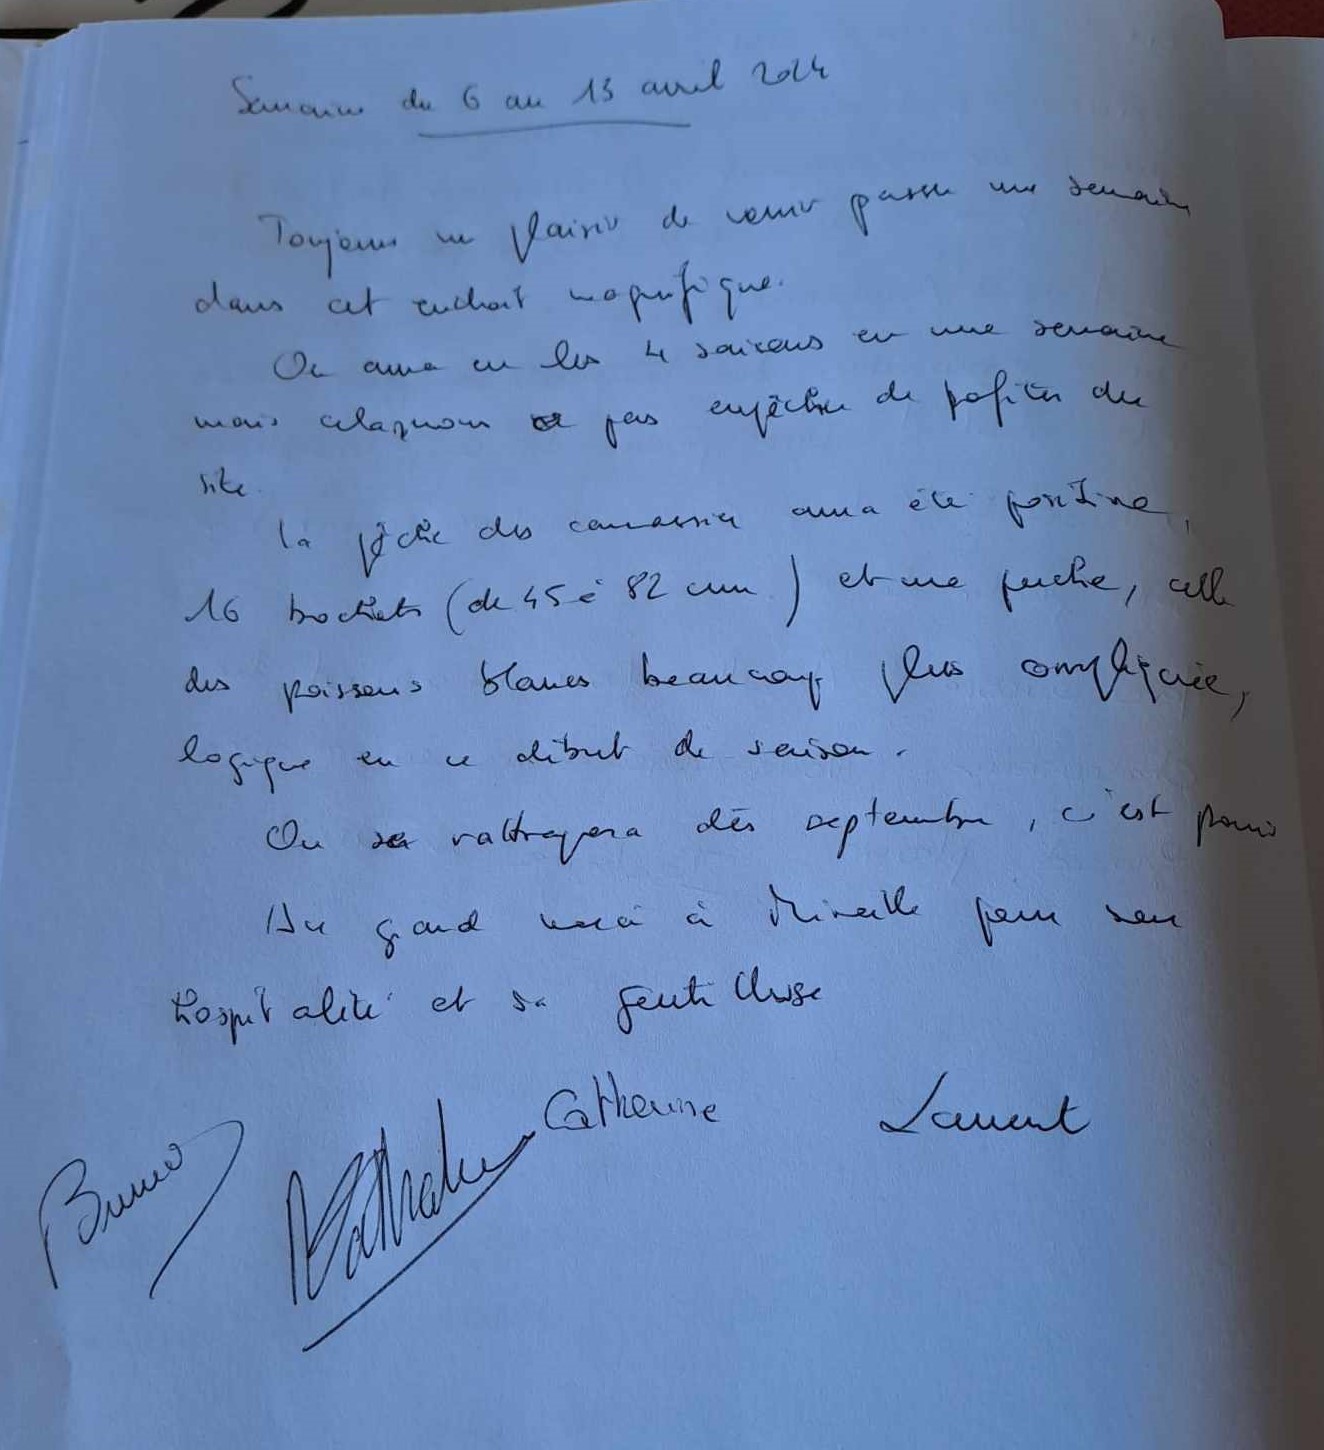 Semaine du 6 au 13 avril 2024
Toujours un plaisir de venir passer une semaine
dans cet endroit magnifique.
On aura eu les 4 saisons en une semaine
mais cela pas empêcher de profiter du
site.
la pêche des carnassier aura été positive,
16 brochets (de 45 à 82 cm) et une perche, celle
des poissons blancs beaucoup plus compliquée,
logique en ce début de saison.
On se rattrapera dès septembre, c'est promis
Un grand merci à Mireille pour son
hospitalité et sa gentillesse
Bruno
Nathalie
Catherine
Laurent